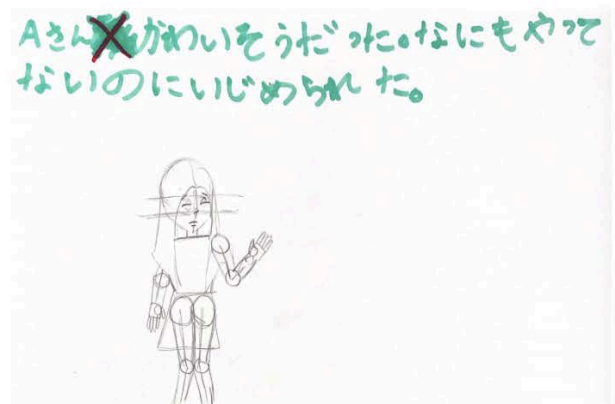 Aさんかわいそうだった。なにもやって
ないのにいじめられた。